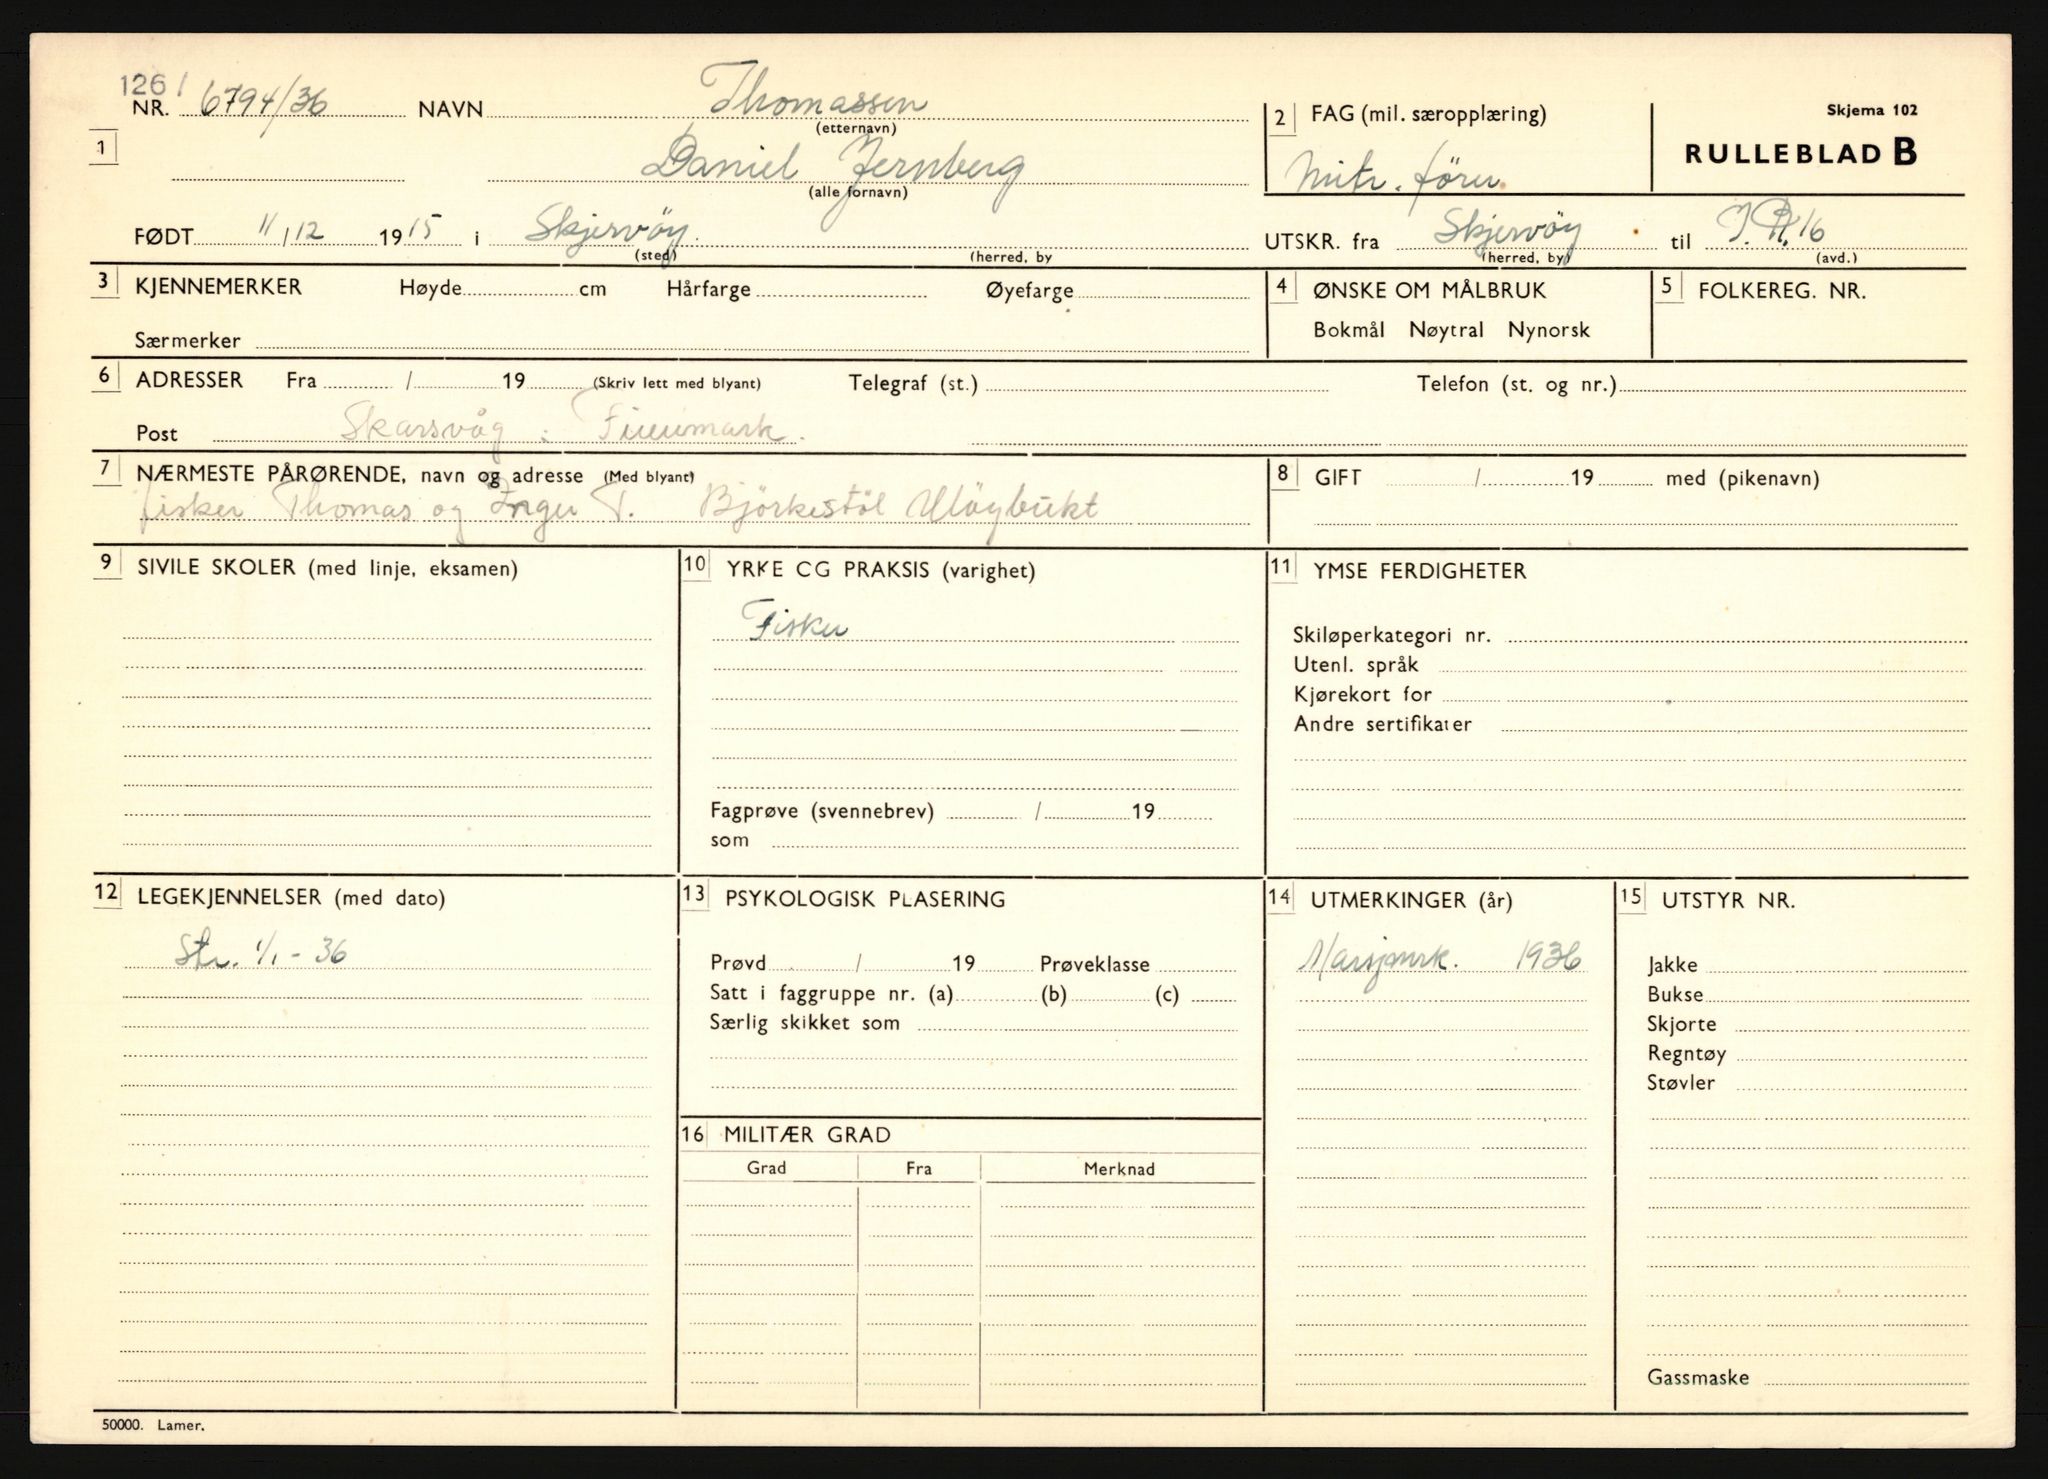 1261
NR. 6794/36 NAVN Thomassen
(etternavn)
2 FAG (mil. særopplæring)
Skjema 102
RULLEBLAD B
1
Daniel Jernberg
(alle fornavn)
Mitr. fører
FØDT 11/12 1915 i Skjervöy
(sted) (herred, by
UTSKR. fra Skjervöy til I.R. 16
(herred, by) (avd.)
3 KJENNEMERKER Høyde cm Hårfarge Øyefarge
Særmerker
4 ØNSKE OM MÅLBRUK
Bokmål Nøytral Nynorsk
5 FOLKEREG. NR.
6 ADRESSER Fra / 19 (Skriv lett med blyant) Telegraf (st.) Telefon (st. og nr.)
Post Skarsvåg : Finnmark.
7 NÆRMESTE PÅRØRENDE, navn og adresse (Med blyant)
fisker Thomas og Inger T. Björkestöl Ulöybukt
8 GIFT / 19 med (pikenavn)
9 SIVILE SKOLER (med linje, eksamen)
10 YRKE CG PRAKSIS (varighet)
Fisker
Fagprøve (svennebrev) / 19
som
11 YMSE FERDIGHETER
Skiløperkategori nr.
Utenl. språk
Kjørekort for
Andre sertifikater
12 LEGEKJENNELSER (med dato)
Str. 1/1 - 36
13 PSYKOLOGISK PLASERING
Prøvd / 19 Prøveklasse
Satt i faggruppe nr. (a) (b) (c)
Særlig skikket som
14 UTMERKINGER (år)
Marsjmrk. 1936
15 UTSTYR NR.
Jakke
Bukse
Skjorte
Regntøy
Støvler
Gassmaske
16 MILITÆR GRAD
Grad Fra Merknad
50000. Lamer.